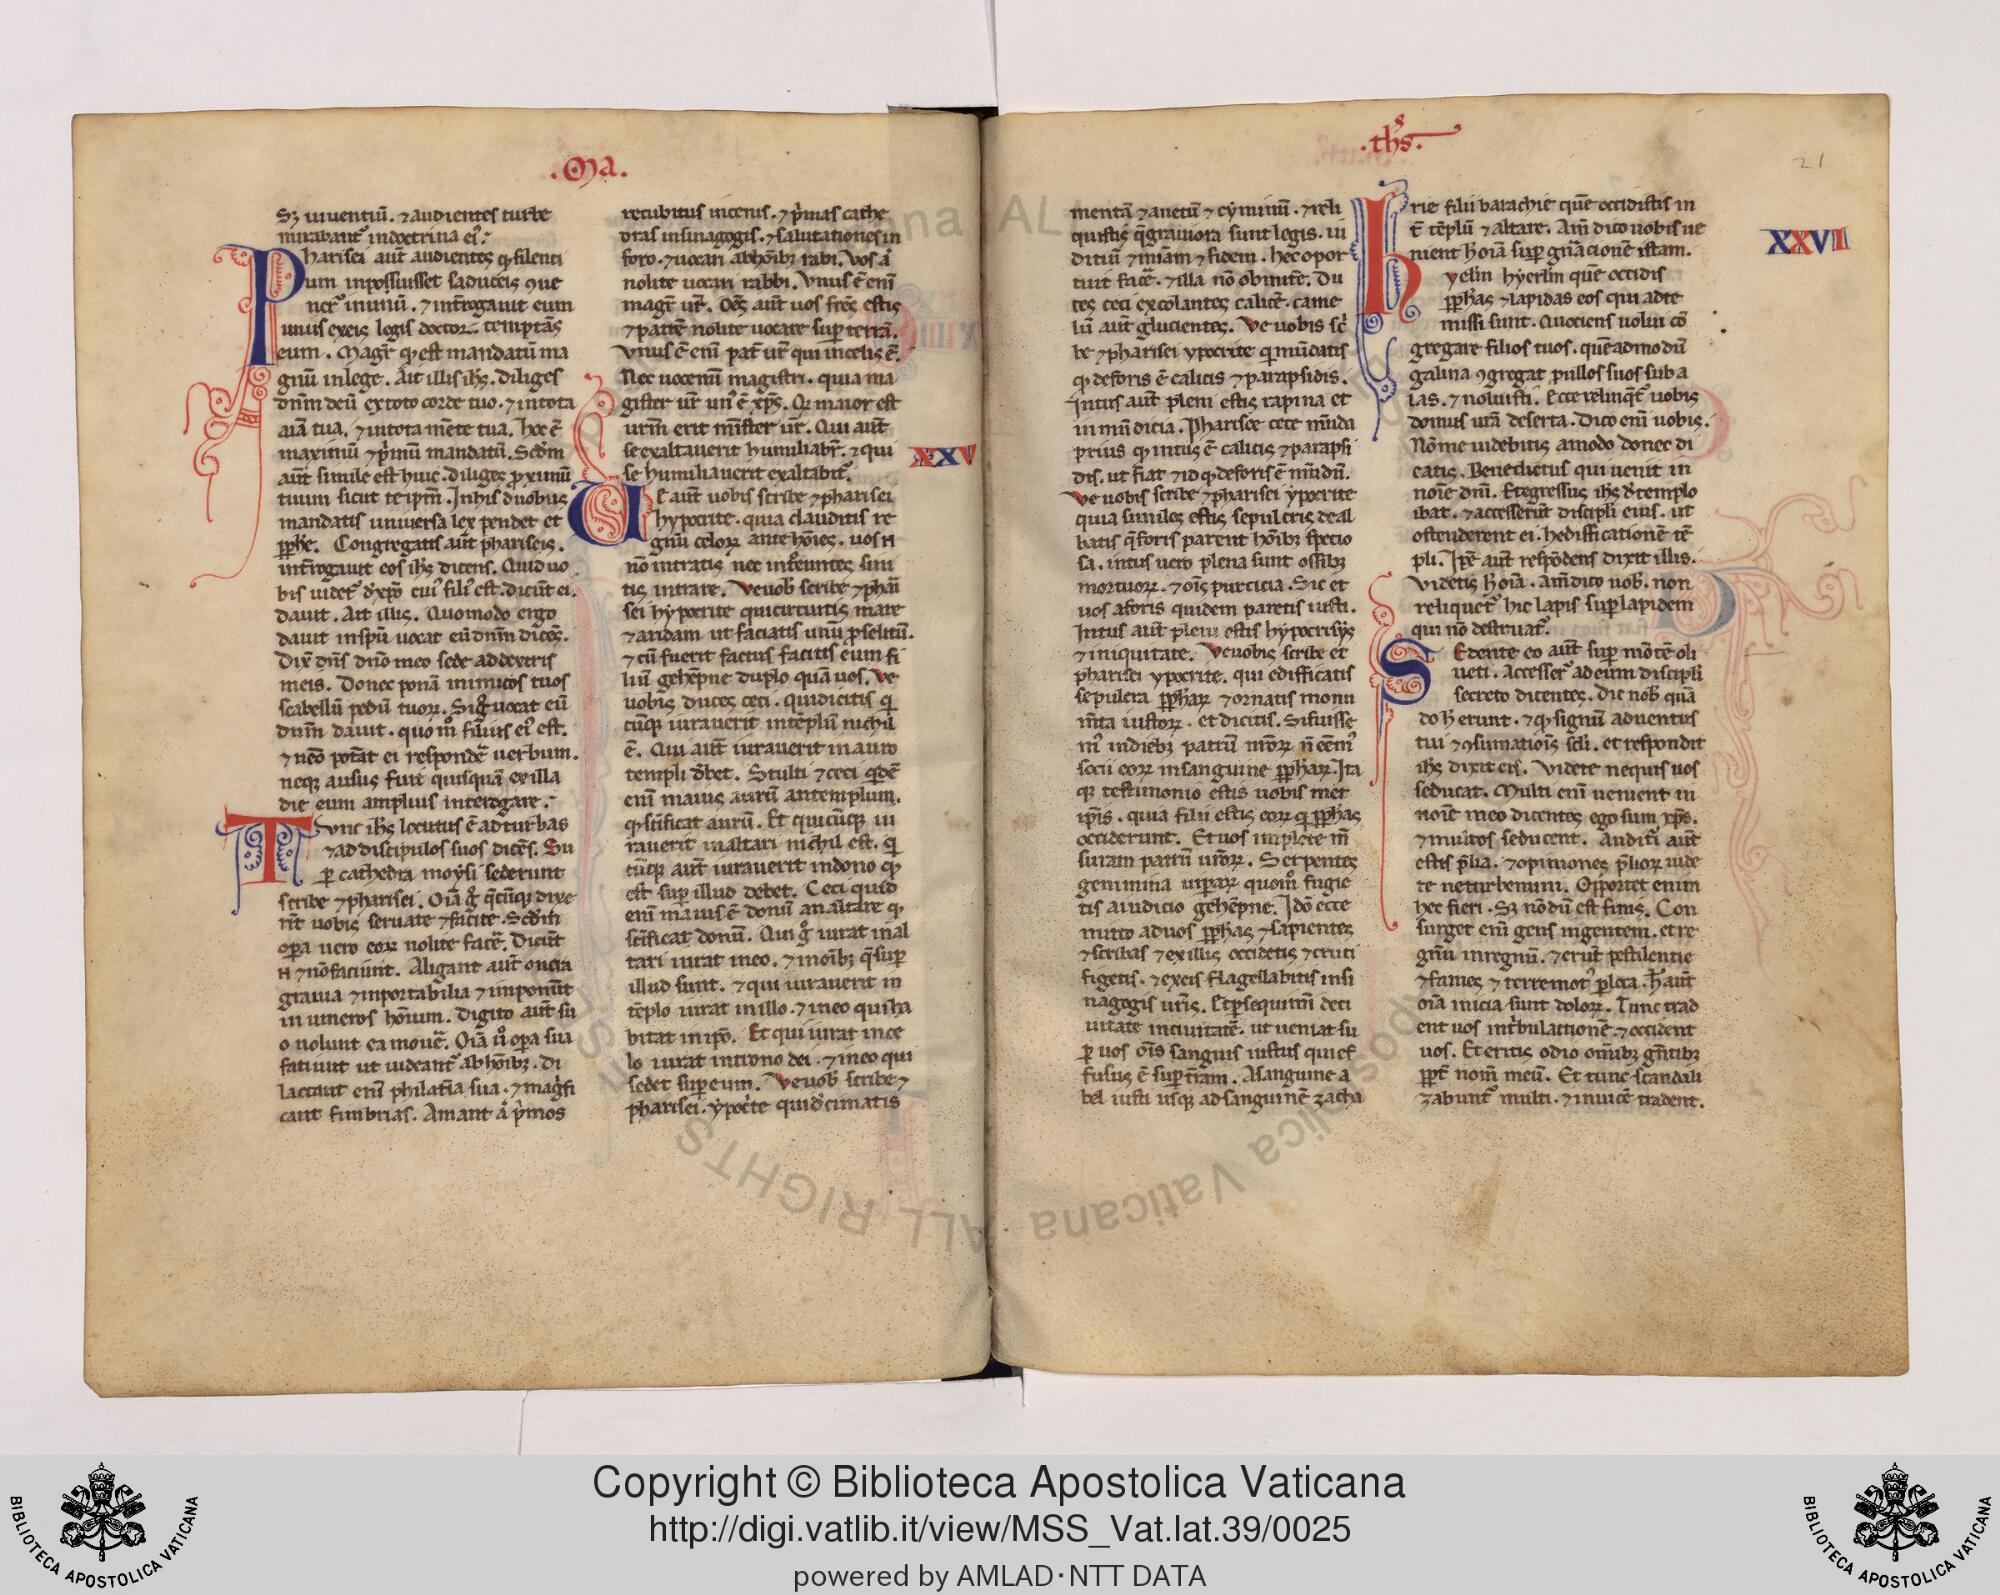 .Ma.
Sꝫ uiuentiū. ⁊ audientes turbe
mirabant᷑ in doctrina ei᷒.
Pharisei aut̄ audientes ꝙ silenti
um inposuisset saduceis ꝯue
ner̄t in unū. ⁊ int̄rogauit eum
unus ex eis legis doctor temptās
eum. Magr̄ qd̄ est mandatū ma
gnū in lege. Ait illis ihs. diliges
dn̄m deū ex toto corde tuo. ⁊ in tota
aīa tua. ⁊ in tota mēte tua. hoc ē
maximū ⁊ p̄mum mandatū. Scd̄m
aūt simile est huic. diliges proximū
tuum sicut te ip̄m. In his duobus
mandatis uniuersa lex pendet et
ꝓphe. Congregatis aūt phariseis.
int̄rogauit eos ihs dicens. Quid uo
bis uidet᷑ d̄ xp̄o cui᷒ fili᷒ est. dicūt ei.
dauit. Ait illis. Quomodo ergo
dauit in sp̄u uocat eū dn̄m dicēs.
Dix̄ dn̄s dn̄o meo sede ad dextris
meis. Donec ponā inimicos tuos
scabellū pedū tuoꝝ. Si gͦ uocat eū
dn̄m dauit. quomͦ filius ei᷒ est.
⁊ nēo pot̄at ei respondē uerbum.
neqꝫ ausus fuit quisquā ex illa
die eum amplius interogare.
Tunc ihs locutus ē ad turbas
⁊ ad discipulos suos dicēs. Su
ꝑ cathedrā moysi sederunt
scribe ⁊ pharisei. Oīa gͦ q̄cūqꝫ dixe
rīt uobis seruate ⁊ facite. Scd̄m
oꝑa uero eoꝝ nolite facē. Dicūt
n̄ ⁊ nō faciunt. Aligant aūt onera
grauia ⁊ inportabilia ⁊ imponūt
in umeros hōium. digito aūt su
o nolunt ea mouē. Oīa uͦ oꝑa sua
fatiunt ut uideant᷑ ab hōibꝫ. Di
lactant enī philateria sua. ⁊ magīfi
cant fimbrias. Amant aͫ p̄mos
recubitus in cenis. ⁊ p̄mas cathe
dras in sinagogis. ⁊ salutationes in
foro. ⁊ uocari ab hōibꝫ rabi. Vos aͫ
nolite uocari rabbi. Vnus ē enī
magr̄ ur̄. Oēs aūt uos fr̄es estis
⁊ patrē nolite uocare suꝑ terrā.
Vnus ē enī pat̄ ur̄ qui in celis ē.
Nec uocemī magistri. quia ma
gister ur̄ un᷒ ē xp̄s. Qͥ maior est
urm̄ erit mīster ur̄. Qui aūt
se exaltauerit humiliabr̄. ⁊ qui
se humiliauerit exaltabit᷑.
XXV
Ue aūt uobis scribe ⁊ pharisei
hypocrite. quia clauditis re
gnū celoꝝ ante hōies. uos n̄
nō intratis nec int̄euntes sini
tis intrare. Ve uob̄ scribe ⁊ phari
sei hypocrite qui circuitis mare
⁊ aridam ut faciatis unū ꝓselitū.
⁊ cū fuerit factus facitis eum fi
liū gehēpne duplo quā uos. Ve
uobis duces ceci. qui dicitis qͥ
cūqꝫ iurauerit in tēplū nichil
ē. Qui aūt iurauerit in auro
templi d̄bet. Stulti ⁊ ceci qͥd ē
enī maius aurū an templum.
qd̄ sc̄ificat aurū. Et quicūqꝫ iu
rauerit in altari nichil est. qͥ
cūqꝫ aūt iurauerit in dono qd̄
est suꝑ illud debet. Ceci quid
enī maius ē donū an altare qd̄
sc̄ificat donū. Qui gͦ iurat in al
tari iurat in eo. ⁊ in oībꝫ q̄ suꝑ
illud sunt. ⁊ qui iurauerit in
tēplo iurat in illo. ⁊ in eo qui ha
bitat in ip̄o. Et qui iurat in ce
lo iurat in trono dei. ⁊ in eo qui
sedet suꝑ eum. Ve uob̄ scribe ⁊
pharisei. ypoc̄te qui d̄cimatis
.ths.
21
mentā ⁊ anetū ⁊ cyminū. ⁊ reli
quistis q̄ grauiora sunt legis. iu
ditiū ⁊ mīam ⁊ fidem. hec opor
tuit facē. ⁊ illa nō omittē. Du
ces ceci excolantes calicē. came
lū aūt glucientes. Ve uobis sc̄
be ⁊ pharisei ypocrite qͥ mūdatis
qd̄ deforis ē calicis ⁊ parapsidis.
Intus aūt pleni estis rapina et
inmūdicia. Pharisee cece mūda
prius qd̄ intus ē calicis ⁊ parapsi
dis. ut fiat ⁊ id qd̄ deforis ē mūdū.
Ve uobis scribe ⁊ pharisei ypocrite
quia similes estis sepulcris deal
batis q̄ foris parent hōibꝫ specio
sa. intus uero plena sunt ossibꝫ
mortuoꝝ. ⁊ oīs purcicia. Sic et
uos aforis quidem paretis iusti.
Intus aūt pleni estis hypocrisys
⁊ iniquitate. Ve uobis scribe et
pharisei ypocrite. qui edifficatis
sepulcra ꝓphaꝝ ⁊ ornatis monu
mīta iustoꝝ. et dicitis. Si fuisse
m᷒ in diebꝫ patrū nroꝝ n̄ eēm᷒
socii eoꝝ in sanguine ꝓphaꝝ. Ita
qꝫ testimonio estis uobis met
ip̄is. quia filii estis eoꝝ qͥ ꝓphas
occiderunt. Et uos implete m̄
suram patrū uroꝝ. Serpentes
genimina uiꝑaꝝ quomͦ fugie
tis a iudicio gehēpne. Idō ecce
mitto ad uos ꝓphas ⁊ sapientes
⁊ scribas ⁊ ex illis occidetis ⁊ cruci
figetis. ⁊ ex eis flagellabitis in si
nagogis uris. Et ꝑsequimī de ci
uitate in ciuitatē. ut ueniat su
ꝑ uos oīs sanguis iustus qui ef
fusus ē suꝑ t̄ram. A sanguine a
bel iusti usqꝫ ad sanguinē zacha
rie filii barachie quē occidistis in
t̄ tēplū ⁊ altare. Am̄ dico uobis ue
nient h oīa suꝑ gn̄acionē istam.
XXVI
hyerlm̄ hyerlm̄ que occidis
ꝓphas ⁊ lapidas eos qui ad te
missi sunt. Quociens uolui cō
gregare filios tuos. quēadmodū
galina ꝯgregat pullos suos sub a
las. ⁊ noluisti. Ecce relinq̄t᷑ uobis
domus urā deserta. Dico enī uobis.
Nō me uidebitis amodo donec di
catis. Benedictus qui uenit in
noīe dn̄i. Et egressus ihs d̄ templo
ibat. ⁊ accesserūt discipli eius. ut
ostenderent ei hedifficationē tē
pli. Ip̄e aūt respōdens dixit illis.
Videtis h oīa. Am̄ dico uob̄. non
reliquet᷑ hic lapis suꝑ lapidem
qui nō destruat᷑.
Sedente eo aūt suꝑ mōtē oli
ueti. Accesser̄t ad eum discipli
secreto dicentes. dic nob̄ quā
do h erunt. ⁊ qd̄ signū aduentus
tui ⁊ ꝯsumationīs sc̄li. et respondit
ihs dixit eis. Videte ne quis uos
seducat. Multi enī uenient in
noīe meo dicentes ego sum xp̄s.
⁊ multos seducent. Audituri aūt
estis p̄lia. ⁊ opiniones p̄lioꝝ uide
te ne turbemini. Opportet enim
hec fieri. Sꝫ nō dū est finis. Con
surget enī gens in gentem. et re
gnū in regnū. ⁊ erūt pestilentie
⁊ fames ⁊ terremot᷒ ꝑ loca. h aūt
oīa inicia sunt doloꝝ. Tunc trad
ent uos in t̄bulationē. ⁊ occident
uos. Et eritis odio omībꝫ gētibꝫ
ꝓpt̄ nom̄ meū. Et tunc scandali
zabunt᷑ multi. ⁊ inuicē tradent.
Copyright © Biblioteca Apostolica Vaticana
http://digi.vatlib.it/view/MSS_Vat.lat.39/0025
powered by AMLAD·NTT DATA
BIBLIOTECA APOSTOLICA VATICANA
BIBLIOTECA APOSTOLICA VATICANA